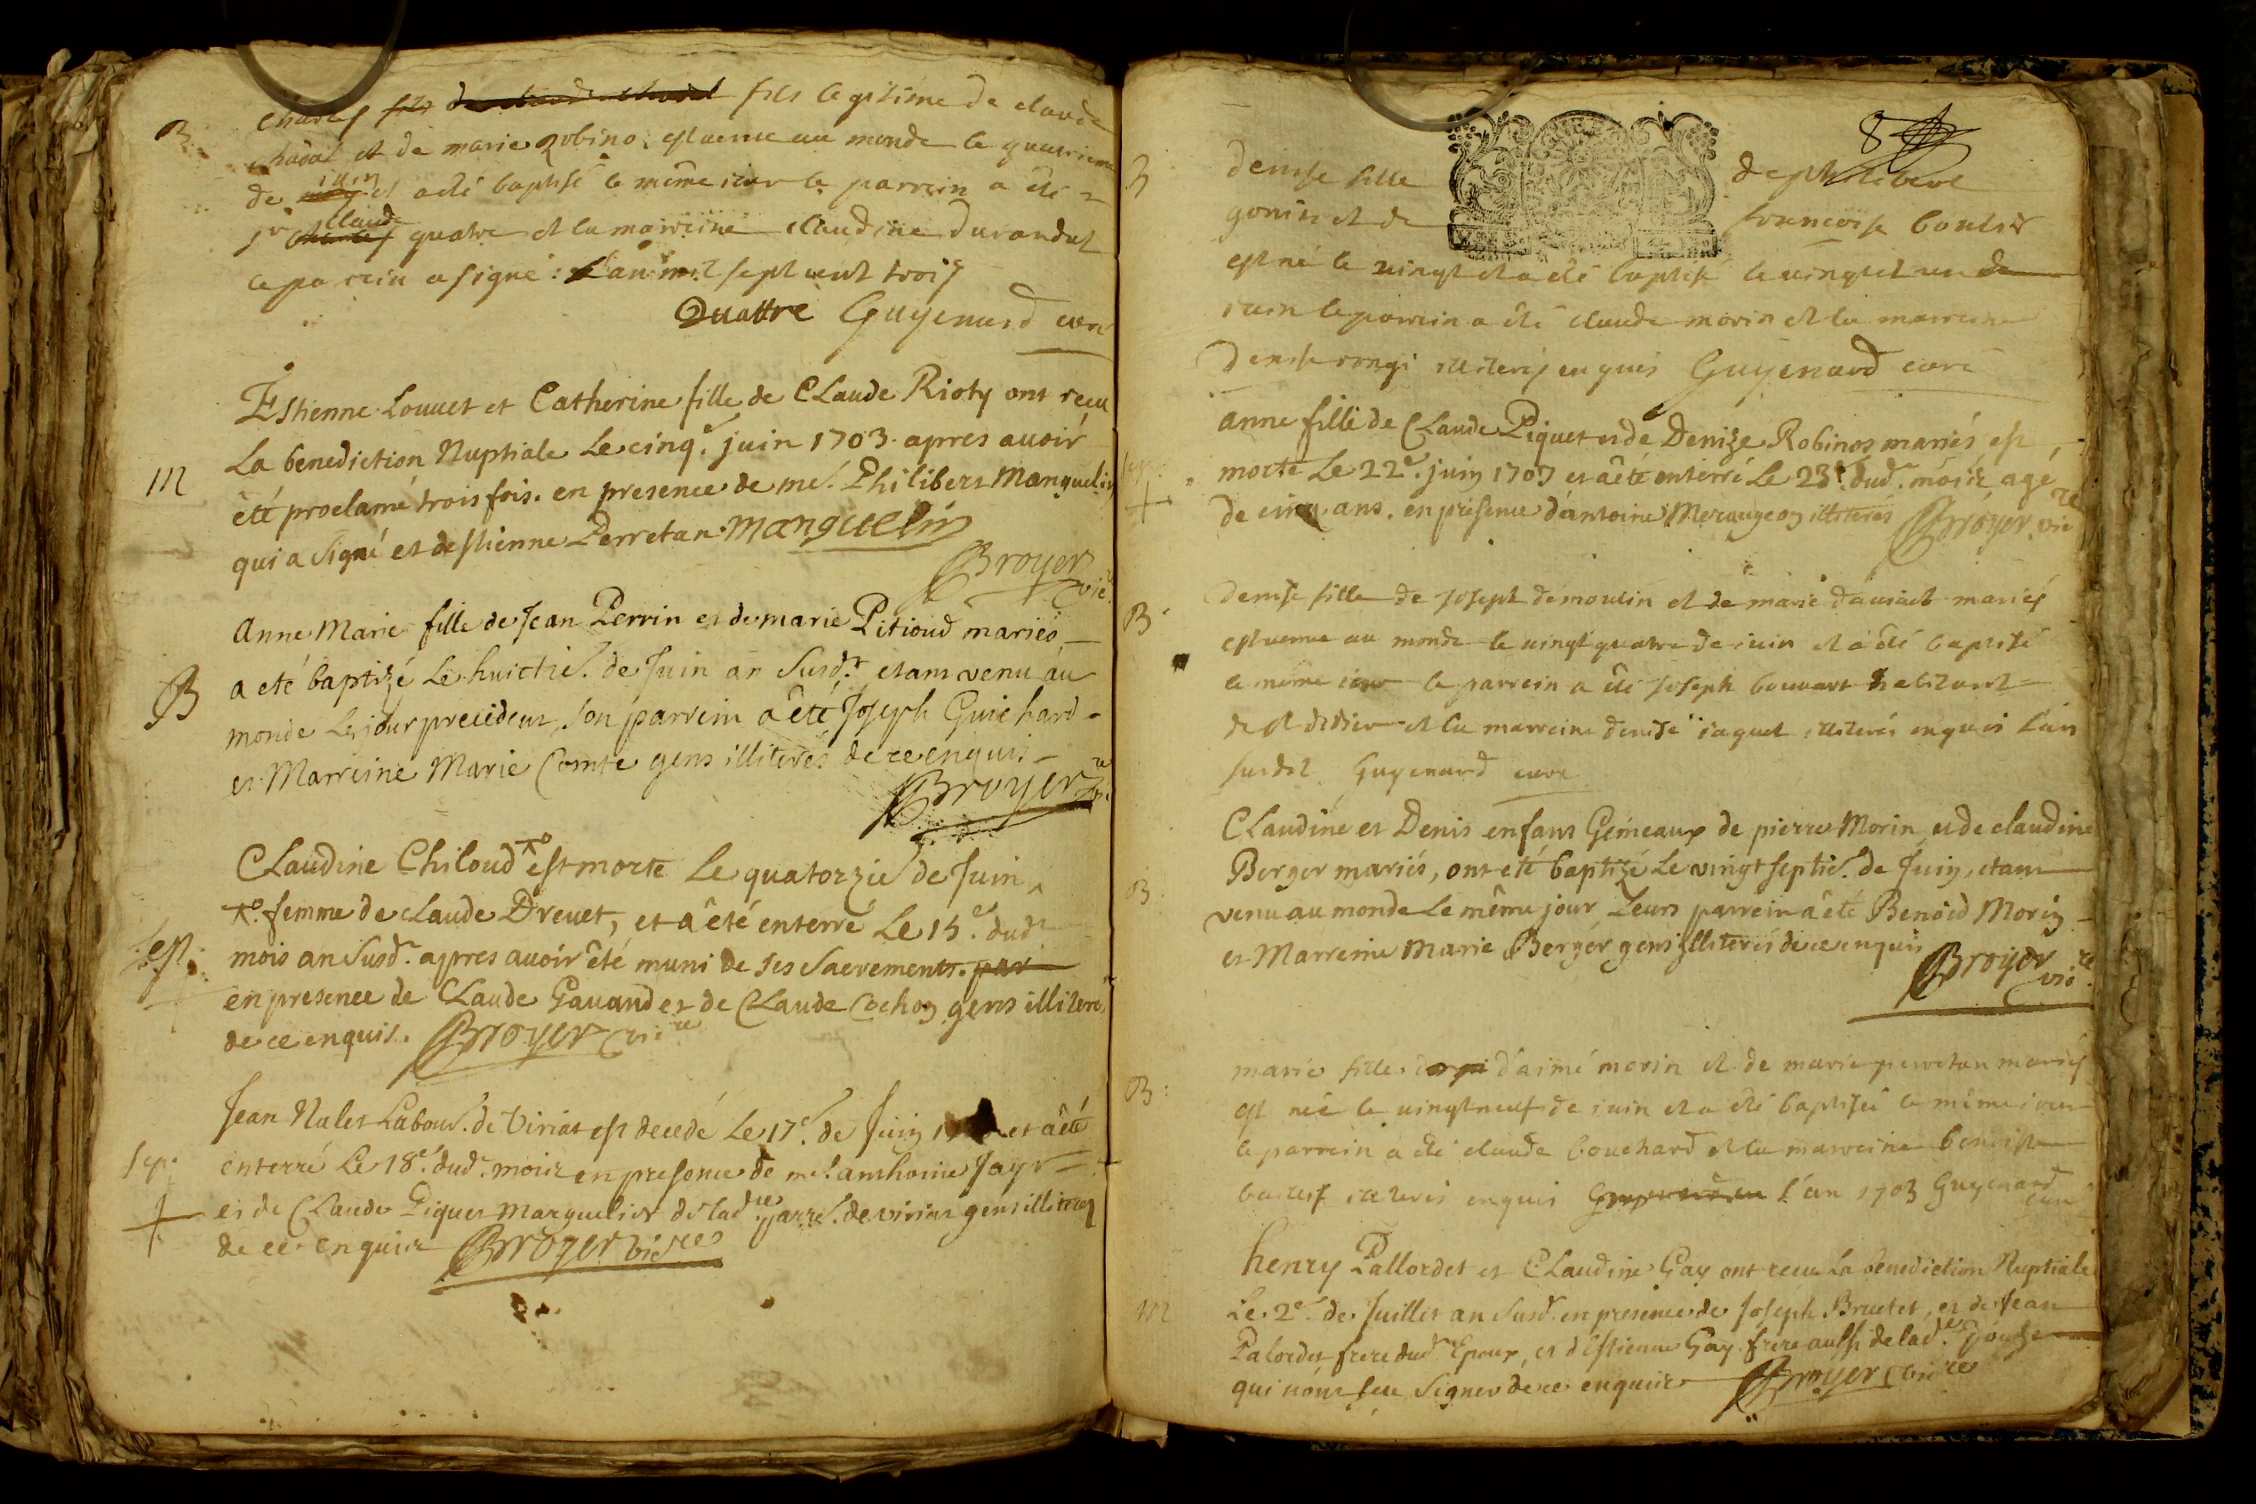 B
Charles fils de claude chadal fils legitime de claude
chadal et de marie Robino. est venue au monde le quatrieme
de juin et a été baptisé le même jour le parrein a été
sr claude quatre et la marreine claudine Durandal
le parrein a signé : l'an mil sept cent trois
Quattre Guyenard curé
M
Estienne Louuet et Catherine fille de Claude Rioty ont reçu
La benediction Nuptiale Le cinq.e juin 1703 apres auoir
été proclamé trois fois. en presence de me. Philibert Manguelin
qui a Signé et destienne Perretan. Manguelin
Broyer vic.
B
Anne Marie fille de Jean Perrin et de marie Pitioud mariés
a eté baptizé Le huictie. de Juin an Susd.t etant venu au
monde Le jour precedent, son parrein a êté Joseph Guichard
et Marreine Marie Comte gens illiterés de ce enquis
Broyer
Sep.
Claudine Chiloud est morte Le quatorzie de Juin
femme de claude Dreuet, et a êté enterré Le 15.e dud.
mois an Susd. apres auoir êté muni de ses Sacrements. par
en presence de Claude Gauand et de Claude Cochon gens illiteré
de ce enquis. Broyer vic.re
Sep.
Jean Nalet Labour. de Viriat est decedé Le 17.e de Juin et a êté
enterré Le 18.e dud. mois en presence de me. anthoine Jayr
et de Claude Piquet Marguelier de lad. parre. de viriat gens illiterez
de ce enquis Broyer vic.re
8
B
denise fille de philibert
gonin et de francoise
est né le vingt et a été baptisé le vingt et un de
juin le parrein a été claude morin et la marreine
denise rongi illiterés enquis Guyenard curé
Sep.
anne fille de Claude Piquet et de Denize Robinos mariés est
morte Le 22.e juin 1703 et a êté enterré Le 23.e dud. mois agé
de cinq ans. en presence d'antoine Meraugeon illiterés Broyer vic.re
B
denise fille de Joseph demoulin et de marie mariés
est venue au monde le vingt quatre de juin et a été baptisé
le même jour le parrein a été Joseph bouvart habitant
de st didier et la marreine denise jaquet illiterés enquis l'an
susdit Guyenard curé
B
Claudine et Denis enfans Gemeaux de pierre Morin et de claudine
Berger mariés, ont eté baptizé Le vingt septie. de Juin, etant
venu au monde Le même jour Leurs parrein a êté Benoid Morin
et Marreine Marie Berger gens illiterés de ce enquis
Broyer vic.re
B:
marie fille d'aimé morin et de marie perretan mariés
est née le vingt neuf de juin et a été baptisée le même jour
le parrein a été claude bouchard et la marreine benoiste
illiterés enquis l'an 1703 Guyenard
curé
M
henry Pallordet et Claudine Gay ont receu La benediction Nuptiale
Le 2.e de Juillet an Susd. en presence de Joseph Bruetet, et de Jean
Palordet frere dud. Epoux, et d'Estienne Gay frere aussi de lad. Epouse
qui n'ont seu Signer de ce enquis Broyer vic.re